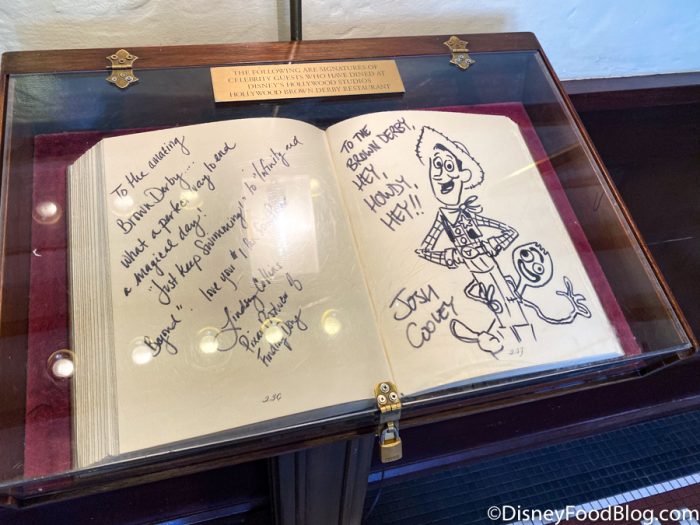 THE FOLLOWING ARE SIGNATURES OF
CELEBRITY GUESTS WHO HAVE DINED AT
DISNEY'S HOLLYWOOD STUDIOS
HOLLYWOOD BROWN DERBY RESTAURANT
To the amazing
Brown Derby....
What a perfect way to end
a magical day!
"Just Keep Swimming" to "Infinity and
Beyond". love you
Lindsey Collins
Pixar Producer of
Finding Dory
236
TO THE
BROWN DERBY,
HEY,
HOWDY,
HEY!!
JOSH
COOLEY
237
©DisneyFoodBlog.com